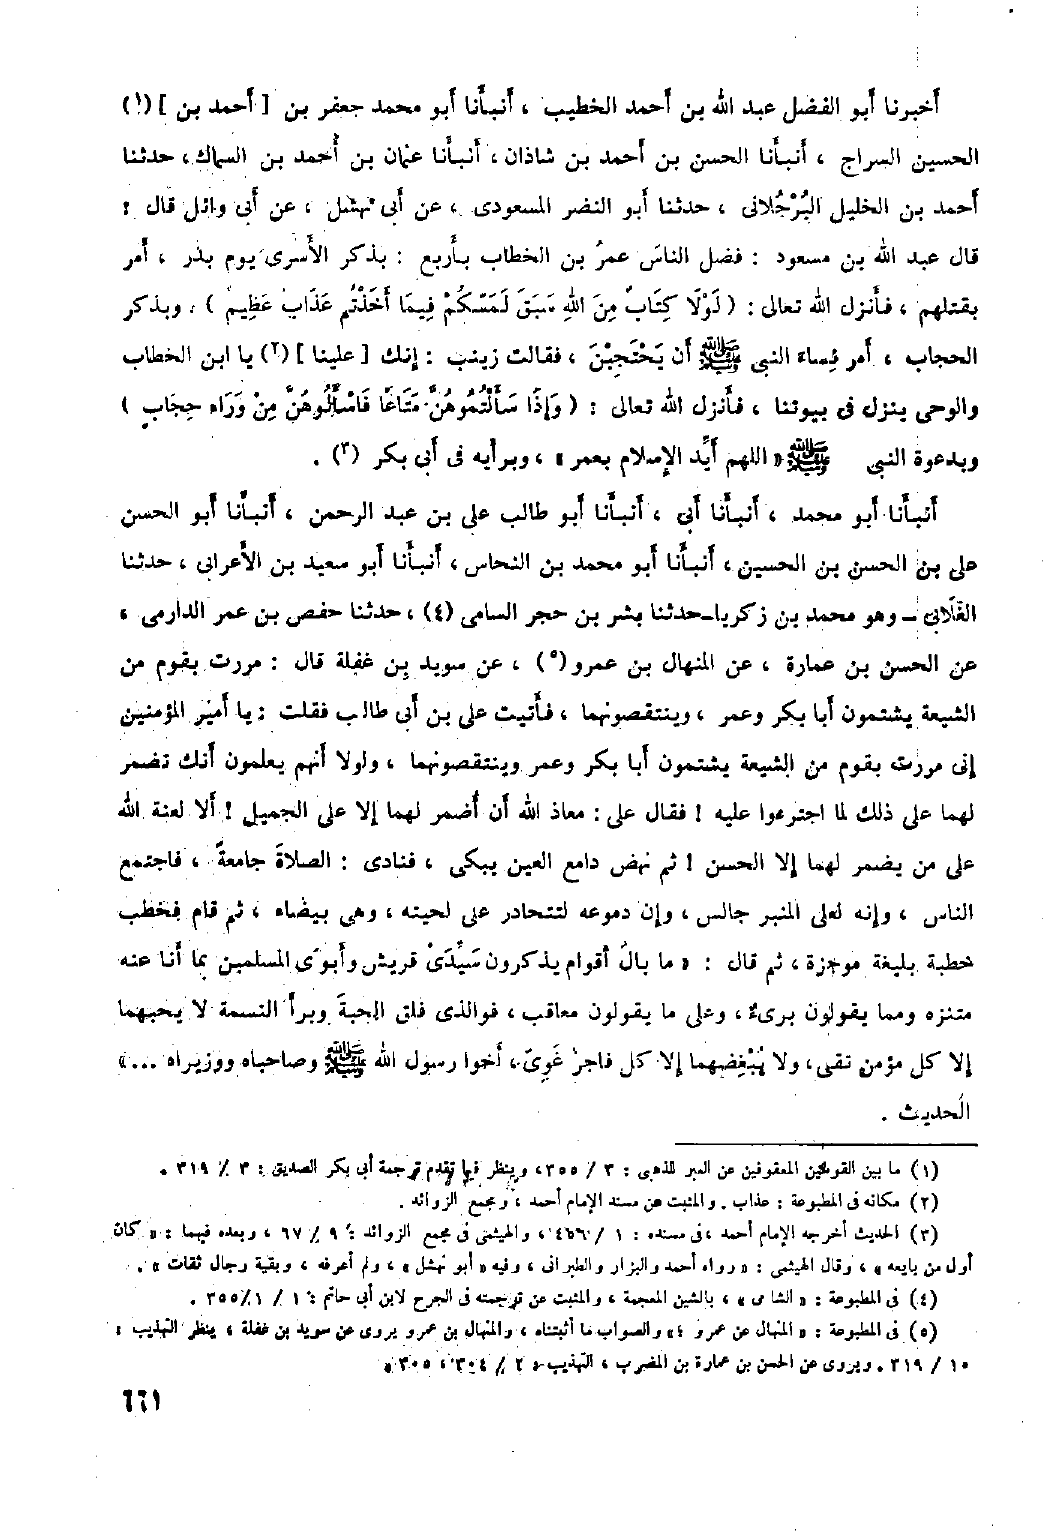 أخبرنا أبو الفضل عبد الله بن أحمد الخطيب ، أنبأنا أبو محمد جعفر بن [ أحمد بن ] (١)
الحسين السراج ، أنبأنا الحسن بن أحمد بن شاذان ، أنبأنا عثمان بن أحمد بن السماك ، حدثنا
أحمد بن الخليل البُرْجُلانى ، حدثنا أبو النضر المسعودى ، عن أبى نهشل ، عن أبى وائل قال :
قال عبد الله بن مسعود : فضل الناسَ عمرُ بن الخطاب بأربع : بذكر الأسرى يوم بدر ، أمر
بقتلهم ، فأنزل الله تعالى : ( لَوْلَا كِتَابٌ مِنَ اللهِ سَبَقَ لَمَسَّكُمْ فِيمَا أَخَذْتُم عَذَابٌ عَظِيمٌ ) ، وبذكر
الحجاب ، أمر نِساء النبى ﷺ أن يَحْتَجِبْنَ ، فقالت زينب : إنك [ علينا ] (٢) يا ابن الخطاب
والوحى ينزل فى بيوتنا ، فأنزل الله تعالى : ( وَإذَا سَأَلْتُمُوهُنَّ مَتَاعًا فَاسْأَلُوهُنَّ مِنْ وَرَاءِ حِجَابٍ )
وبدعوة النبى ﷺ « اللهم أيِّد الإسلام بعمر » ، وبرأيه فى أبى بكر (٣) .
أنبأنا أبو محمد ، أنبأنا أبى ، أنبأنا أبو طالب على بن عبد الرحمن ، أنبأنا أبو الحسن
على بن الحسن بن الحسين ، أنبأنا أبو محمد بن النحاس ، أنبأنا أبو سعيد بن الأعرابى ، حدثنا
الغَلَابى – وهو محمد بن زكريا – حدثنا بشر بن حجر السامى (٤) ، حدثنا حفص بن عمر الدارمى ،
عن الحسن بن عمارة ، عن المنهال بن عمرو (٥) ، عن سويد بن غفلة قال : مررت بقوم من
الشيعة يشتمون أبا بكر وعمر ، وينتقصونهما ، فأتيت على بن أبى طالب فقلت : يا أمير المؤمنين
إنى مررت بقوم من الشيعة يشتمون أبا بكر وعمر وينتقصونهما ، ولولا أنهم يعلمون أنك تضمر
لهما على ذلك لما اجترءوا عليه ! فقال على : معاذ الله أن أضمر لهما إلا على الجميل ! ألا لعنة الله
على من يضمر لهما إلا الحسن ! ثم نهض دامع العين يبكى ، فنادى : الصلاةَ جامعةً ، فاجتمع
الناس ، وإنه لعلى المنبر جالس ، وإن دموعه لتتحادر على لحيته ، وهى بيضاء ، ثم قام فخطب
خطبة بليغة موجزة ، ثم قال : « ما بالُ أقوام يذكرون سَيِّدَىْ قريش وأبوَى المسلمين بما أنا عنه
متنزه ومما يقولون برىءٌ ، وعلى ما يقولون معاقب ، فوالذى فلق الحبةَ وبرأ النسمة لا يحبهما
إلا كل مؤمن تقى ، ولا يُبْغِضهما إلا كل فاجر غَوِىّ ، أخوا رسول الله ﷺ وصاحباه ووزيراه ... »
الحديث .
(١) ما بين القوسين المعقوفين عن العبر للذهبى : ٣ / ٣٥٥ ، وينظر فيما تقدم ترجمة أبى بكر الصديق : ٣ / ٣١٩ .
(٢) مكانه فى المطبوعة : عذاب . والمثبت عن مسند الإمام أحمد ، ومجمع الزوائد .
(٣) الحديث أخرجه الإمام أحمد ، فى مسنده : ١ / ٤٥٦ ، والهيثمى فى مجمع الزوائد : ٩ / ٦٧ ، وبعده فيهما : « كان
أول من بايعه » ، وقال الهيثمى : « رواه أحمد والبزار والطبرانى ، وفيه « أبو نهشل » ، ولم أعرفه ، وبقية رجال ثقات » .
(٤) فى المطبوعة : « الشامى » ، بالشين المعجمة ، والمثبت عن ترجمته فى الجرح لابن أبى حاتم : ١ / ١ / ٣٥٥ .
(٥) فى المطبوعة : « المنهال عن عمرو » ، والصواب ما أثبتناه ، والمنهال بن عمرو يروى عن سويد بن غفلة ، ينظر التهذيب :
١٠ / ٣١٩ . ويروى عن الحسن بن عمارة بن المضرب ، التهذيب : ٢ / ٣٠٤ ، ٣٠٥ .
٦٦١